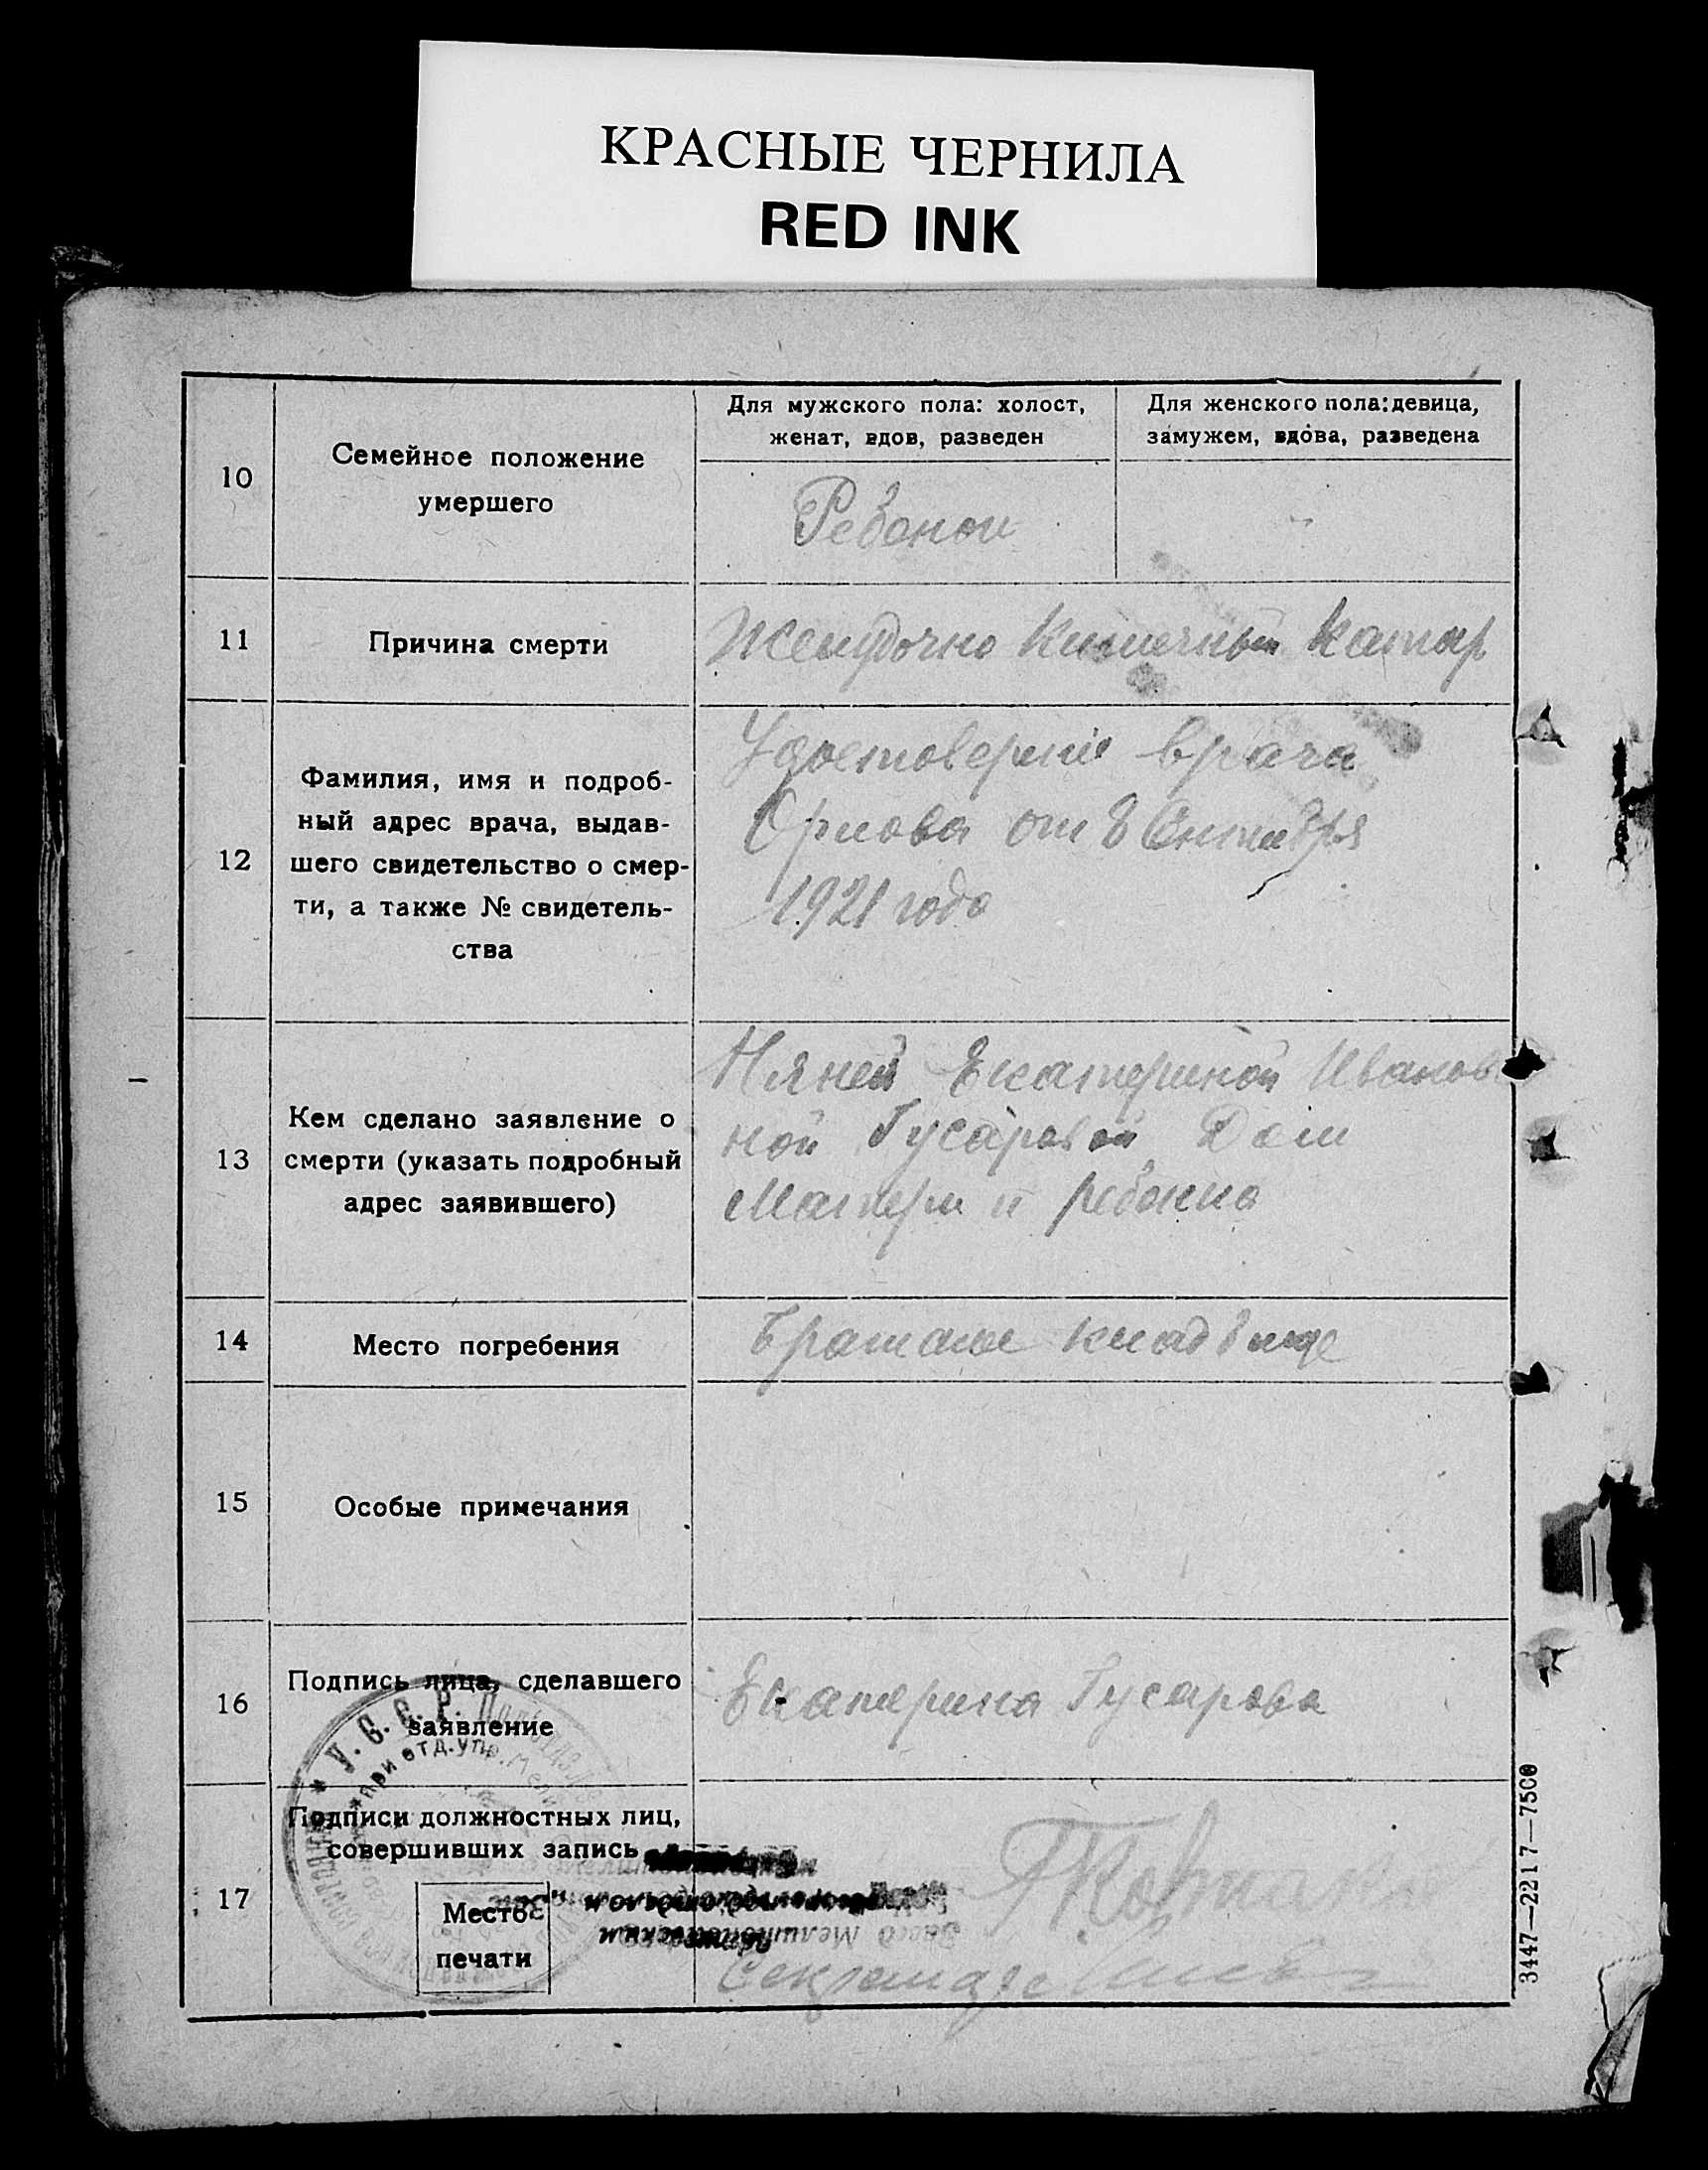 КРАСНЫЕ ЧЕРНИЛА
RED INK
10
Семейное положение
умершего
Для мужского пола: холост,
женат, вдов, разведен
Для женского пола: девица,
замужем, вдова, разведена
Ребенок
11
Причина смерти
Желудочно Кишечный Катар
12
Фамилия, имя и подроб-
ный адрес врача, выдав-
шего свидетельство о смер-
ти, а также № свидетель-
ства
Удостоверение врача
Орлова от 8 Октября
1921 года
13
Кем сделано заявление о
смерти (указать подробный
адрес заявившего)
Няней Екатериной Иванов
ной Гусаровой Дом
Матери и ребенка
14
Место погребения
Братское кладбище
15
Особые примечания
16
Подпись лица, сделавшего
заявление
Екатерина Гусарова
17
Подписи должностных лиц,
совершивших запись
Место
печати
Секретарь
У. С. С. Р.
при отд. упр.
3447—2217—7500